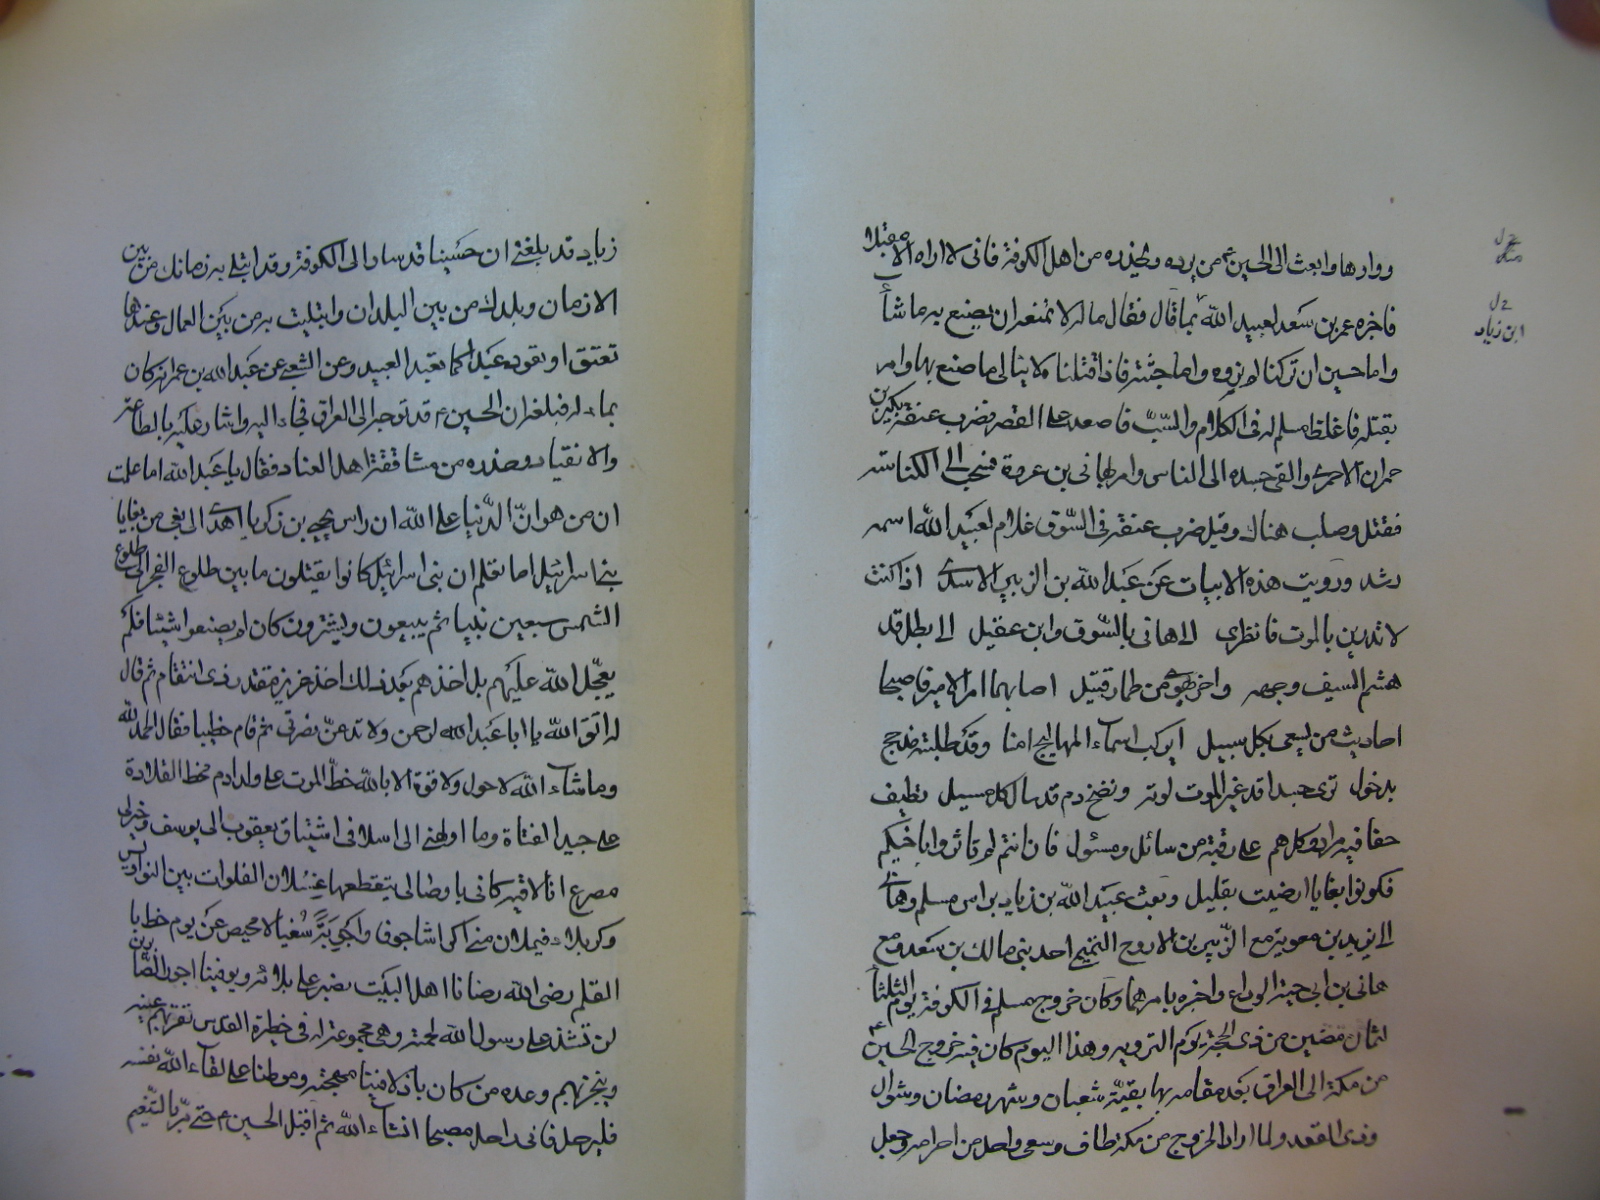 ووارها وابعث الى الحسين ع من يرده ويحذره من اهل الكوفة فانى لا اراه الا مقتلا
فاخبره عمر بن سعد لعبيد الله بما قال فقال ماله لا نمنعه ان يصنع به ما شاء
واما حسين ان تركنا لم نرده واما جثته فاذا قتلناه لا يبالى ما صنع بها وامر
بقتله فاغلظ مسلم له فى الكلام والسّبّ فاصعد على القصر فضرب عنقه بكير بن
حمران الاحمرى والقى جسده الى الناس وامر بهانى بن عروة فسحب الى الكناسة
فقتل وصلب هناك وقيل ضرب عنقه فى السّوق غلام لعبيد الله اسمه
رشد ورويت هذه الابيات عن عبد الله بن الزبير الاسدى اذا كنت
لا تدرين بالموت فانظرى الى هانى بالسّوق وابن عقيل الى بطل قد
هشم السيف وجهه واخر يهوى من طمار قتيل اصابهما امر الامير فاصبحا
احاديث من يسعى بكل سبيل ايركب اسماء الهماليج امنا وقد طلبته مذحج
بدخول ترى جسدا قد غير الموت لونه ونضخ دم قد سال كل مسيل تطيف
حفافيه مراد وكلهم على رقبة من سائل ومسئول فان انتم لم تاثروا باخيكم
فكونوا بغايا ارضيت بقليل وبعث عبيد الله بن زياد براس مسلم وهانى
الى يزيد بن معوية مع الزّبير بن الاروح التميمى احد بنى مالك بن سعد ومع
هانى بن ابى حية الوداعى واخبره بامرهما وكان خروج مسلم فى الكوفة يوم الثلثا
لثمان مضين من ذى الحجة يوم التروية وهذا اليوم كان فيه خروج الحسين ع
من مكة الى العراق بعد مقامه بها بقيّة شعبان وشهر رمضان وشوال
وذى القعد ولما اراد الخروج من مكة طاف وسعى واحل من احرامه وجعل
ابن زياد
زياد قد بلغنى ان حسينا قد سار الى الكوفة وقد ابتلى به زمانك من بين
الازمان وبلدك من بين البلدان وابتليت به من بين العمال وعندها
تعتق او تعود عبدا كما تعبد العبيد وعن الشعبى عن عبد الله بن عمر انه كان
بماء له فبلغه ان الحسين ع قد توجه الى العراق فجاء اليه واشار عليه بالطاعة
والانقياد وحذره من مشاققة اهل العناد فقال يا عبد الله اما علمت
ان من هوان الدّنيا على الله ان راس يحيى بن زكريا اهدى الى بغى من بغايا
بنى اسرائيل اما تعلم ان بنى اسرائيل كانوا يقتلون ما بين طلوع الفجر الى طلوع
الشمس سبعين نبيا ثم يبيعون ويشترون كان لم يصنعوا شيئا فلم
يعجّل الله عليهم بل اخذهم بعد ذلك اخذ عزيز مقتدر ذى انتقام ثم قال
له اتق الله يا ابا عبد الرحمن ولا تدعنّ نصرتى ثم قام خطيبا فقال الحمد لله
وما شاء الله لا حول ولا قوة الا بالله خطّ الموت على ولد ادم مخط القلادة
على جيد الفتاة وما اولهنى الى اسلافى اشتياق يعقوب الى يوسف وخير لى
مصرع انا لاقيه كانى باوصالى يتقطعها عسلان الفلوات بين النواويس
وكربلاء فيملان منى اكراشا جوفا واجربة سغبا لا محيص عن يوم خط با
القلم رضى الله رضانا اهل البيت نصبر على بلائه ويوفينا اجور الصّابرين
لن تشذ على رسول الله لحمته وهى مجموعة له فى حظيرة القدس تقر بهم عينه
وينجز بهم وعده من كان باذلا فينا مهجته وموطنا على لقاء الله نفسه
فليرحل فانى راحل مصبحا انشاء الله ثم اقبل الحسين ع حتى مرّ بالتنعيم